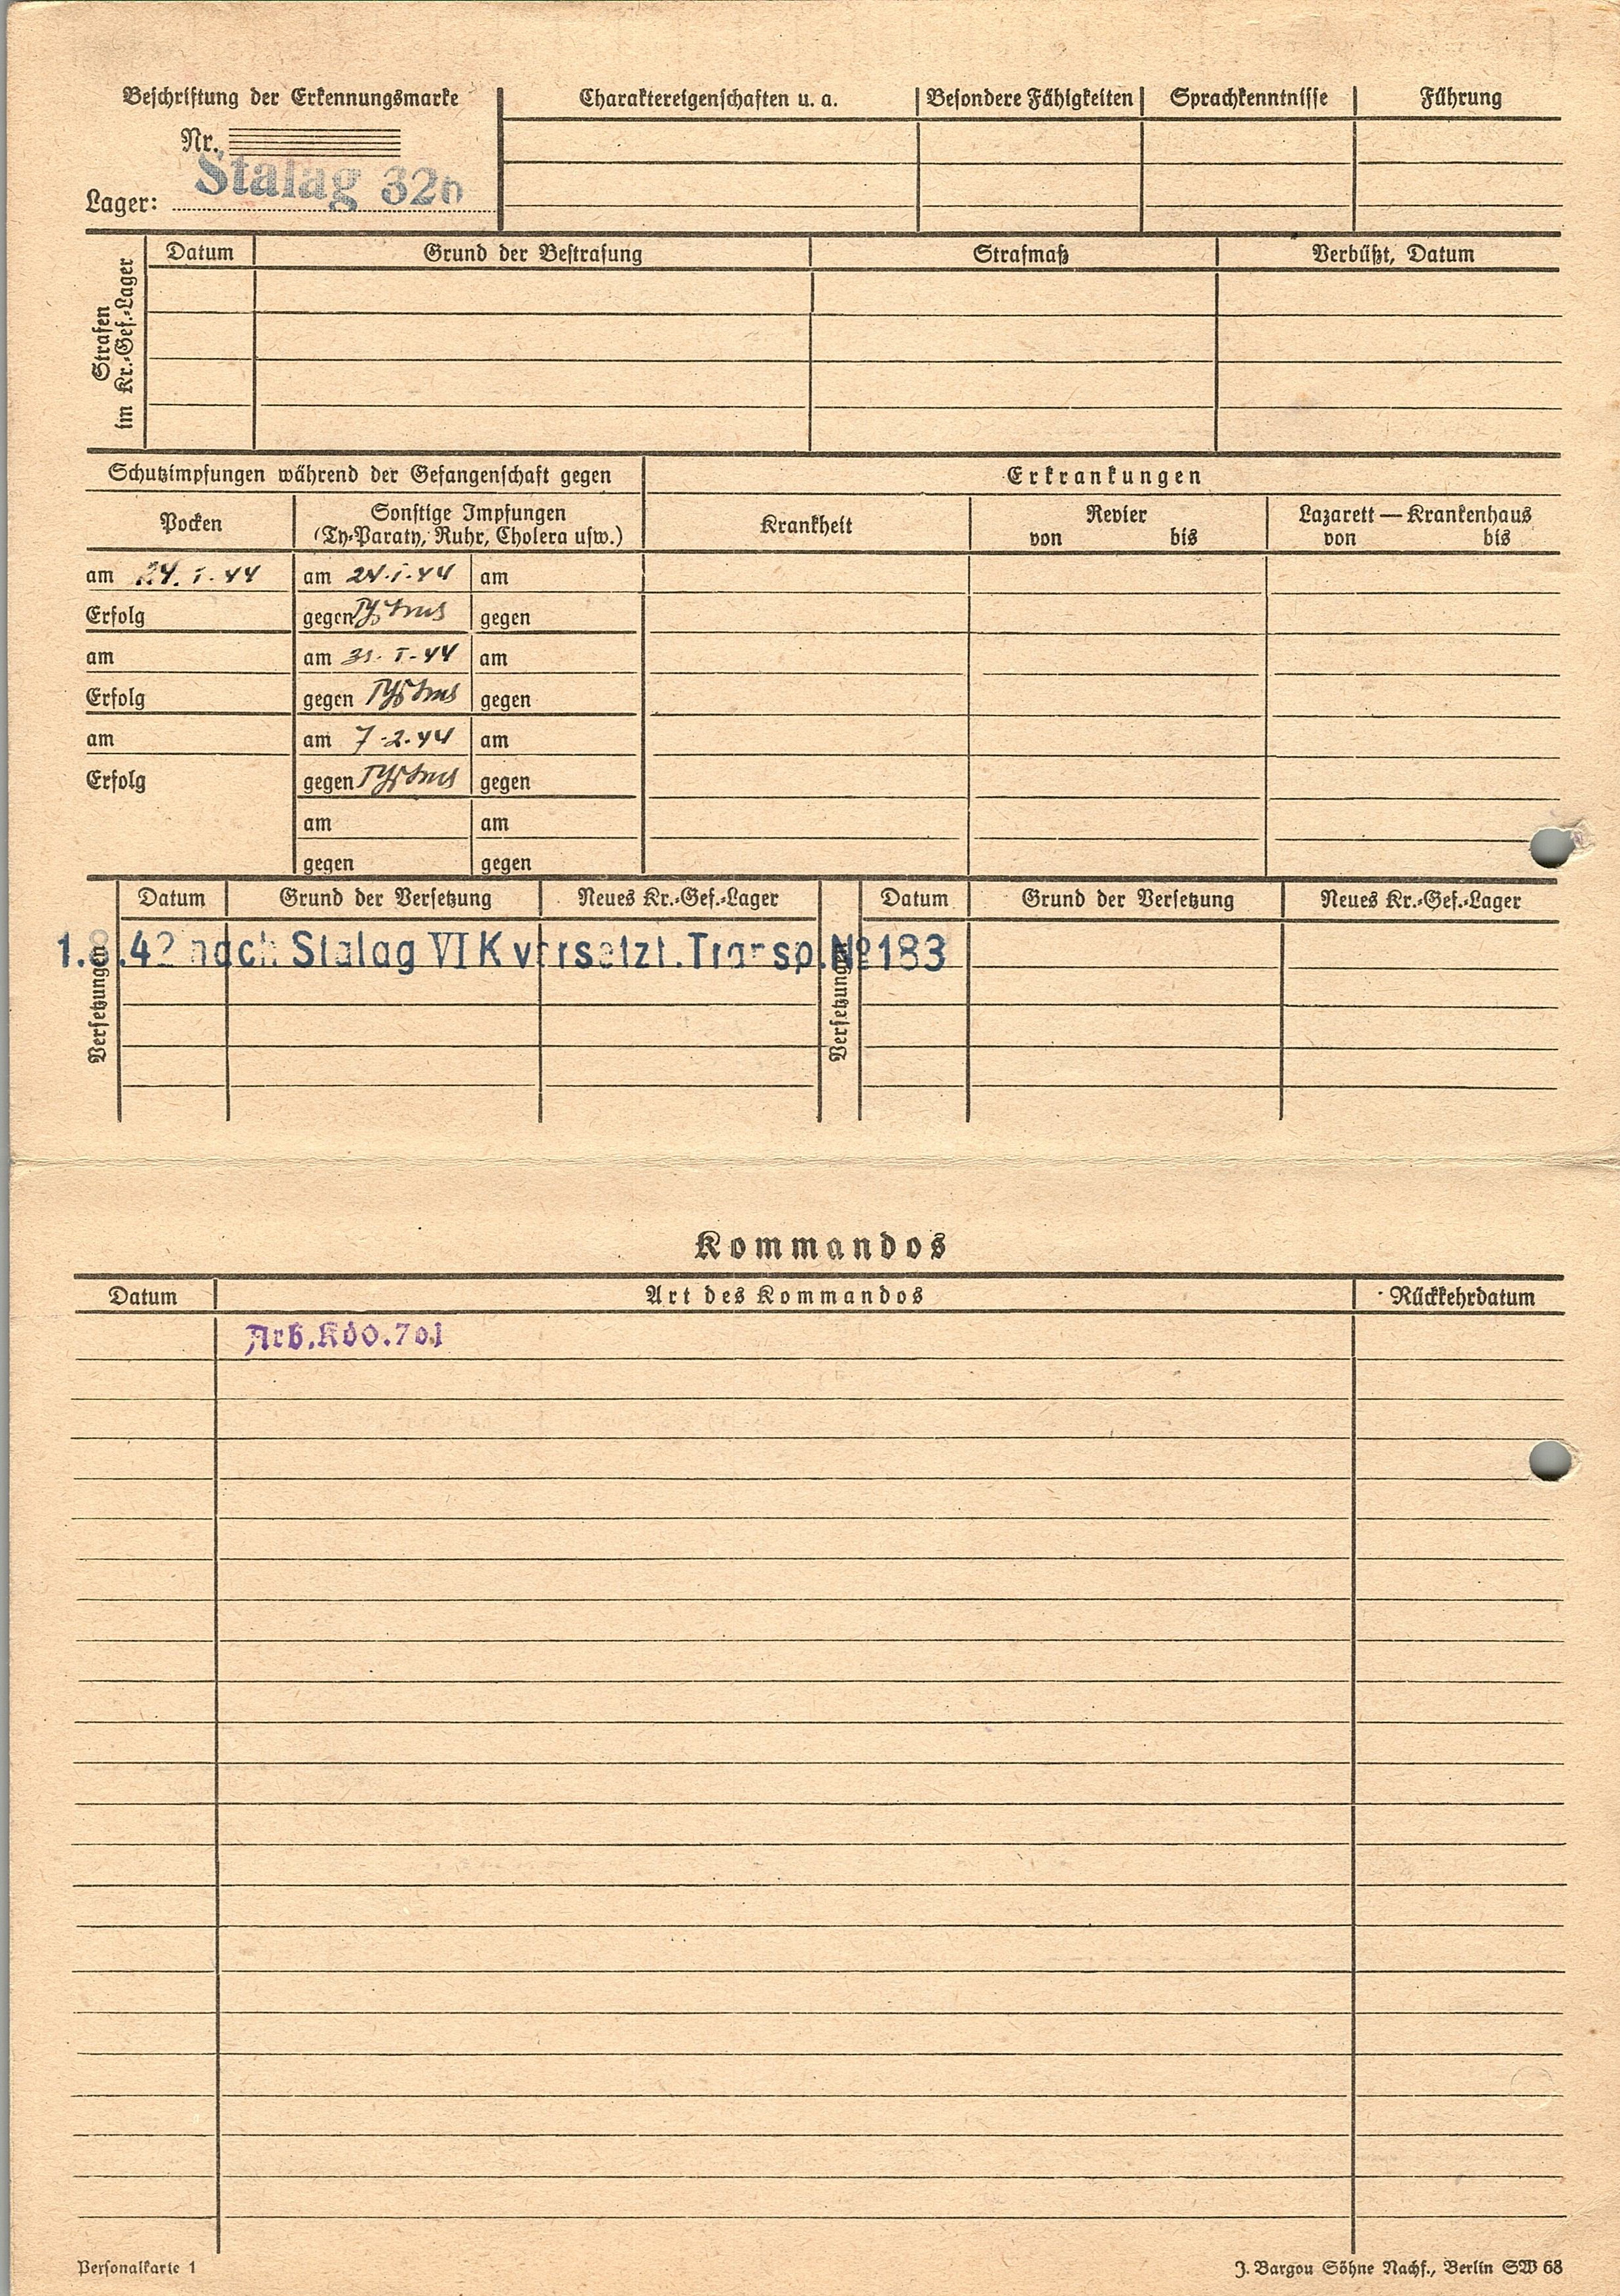 Beschriftung der Erkennungsmarke
Charaktereigenschaften u. a.
Besondere Fähigkeiten
Sprachkenntnisse
Führung
Nr.
Lager: Stalag 326
Strafen im Kr.-Gef.-Lager
Datum
Grund der Bestrafung
Strafmaß
Verbüßt, Datum
Schutzimpfungen während der Gefangenschaft gegen
Erkrankungen
Pocken
Sonstige Impfungen
(Ty-Paraty, Ruhr, Cholera usw.)
Krankheit
Revier
von bis
Lazarett — Krankenhaus
von bis
am 24. I. 44
am 24. I. 44
am
Erfolg
gegen Typhus
gegen
am
am 31. I. 44
am
Erfolg
gegen Typhus
gegen
am
am 7. 2. 44
am
Erfolg
gegen Typhus
gegen
am
am
gegen
gegen
Versetzungen
Datum
Grund der Versetzung
Neues Kr.-Gef.-Lager
Versetzungen
Datum
Grund der Versetzung
Neues Kr.-Gef.-Lager
42 nach Stalag VI K versetzt. Transp. № 183
Kommandos
Datum
Art des Kommandos
Rückkehrdatum
Arb. Kdo. 701
Personalkarte 1
J. Bargou Söhne Nachf., Berlin SW 68